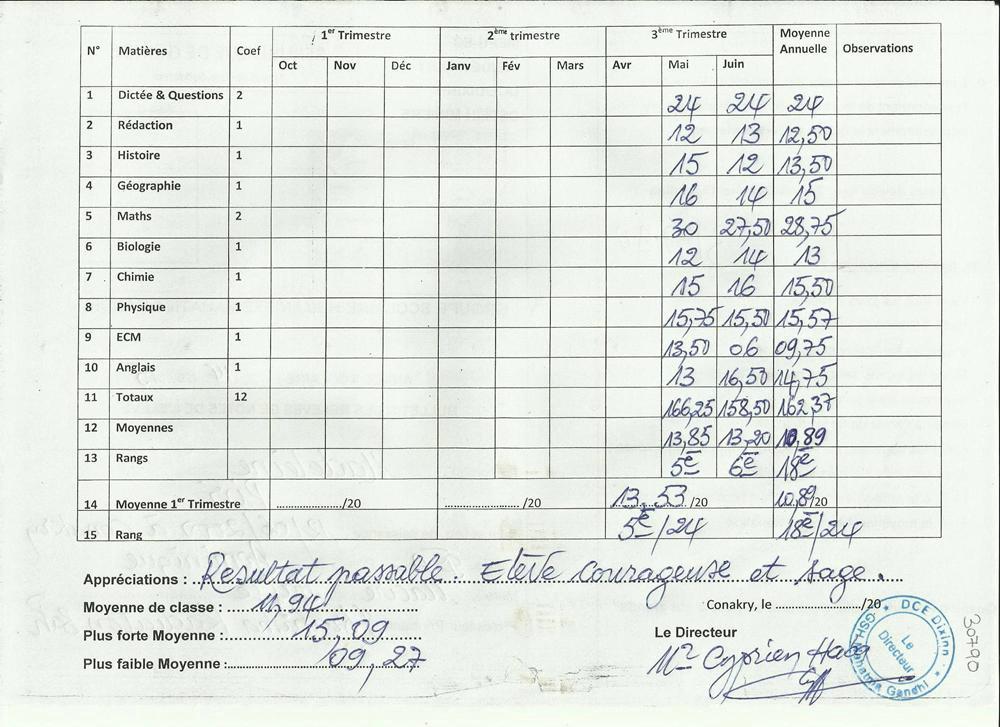 N° Matières Coef 1er Trimestre 2ème trimestre 3ème Trimestre Moyenne Annuelle Observations
Oct Nov Déc Janv Fév Mars Avr Mai Juin
1 Dictée & Questions 2 24 24 24
2 Rédaction 1 12 13 12,50
3 Histoire 1 15 12 13,50
4 Géographie 1 16 14 15
5 Maths 2 30 27,50 28,75
6 Biologie 1 12 14 13
7 Chimie 1 15 16 15,50
8 Physique 1 15,75 15,50 15,57
9 ECM 1 13,50 06 09,75
10 Anglais 1 13 16,50 14,75
11 Totaux 12 166,25 158,50 162,37
12 Moyennes 13,85 13,20 10,89
13 Rangs 5e 6e 18e
14 Moyenne 1er Trimestre ............/20 ............/20 13,53/20 10,89/20
15 Rang 5e/24 18e/24
Appréciations : Résultat passable. Elève courageuse et sage.
Moyenne de classe : 11,94
Conakry, le ............/20
Plus forte Moyenne : 15,09
Le Directeur
Plus faible Moyenne : 09,27
Mr Cyprien Haba
DCE Dixinn
Le Directeur
GSP Mahatma Gandhi
30790